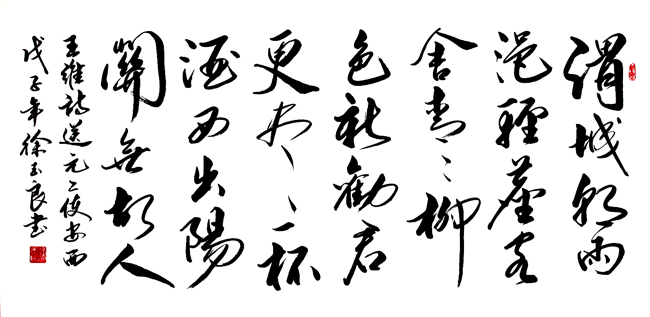 渭城朝雨
浥輕塵客
舍青〻柳
色新勸君
更盡一杯
酒西出陽
關無故人
王維詩送元二使安西
戊子年徐玉良書